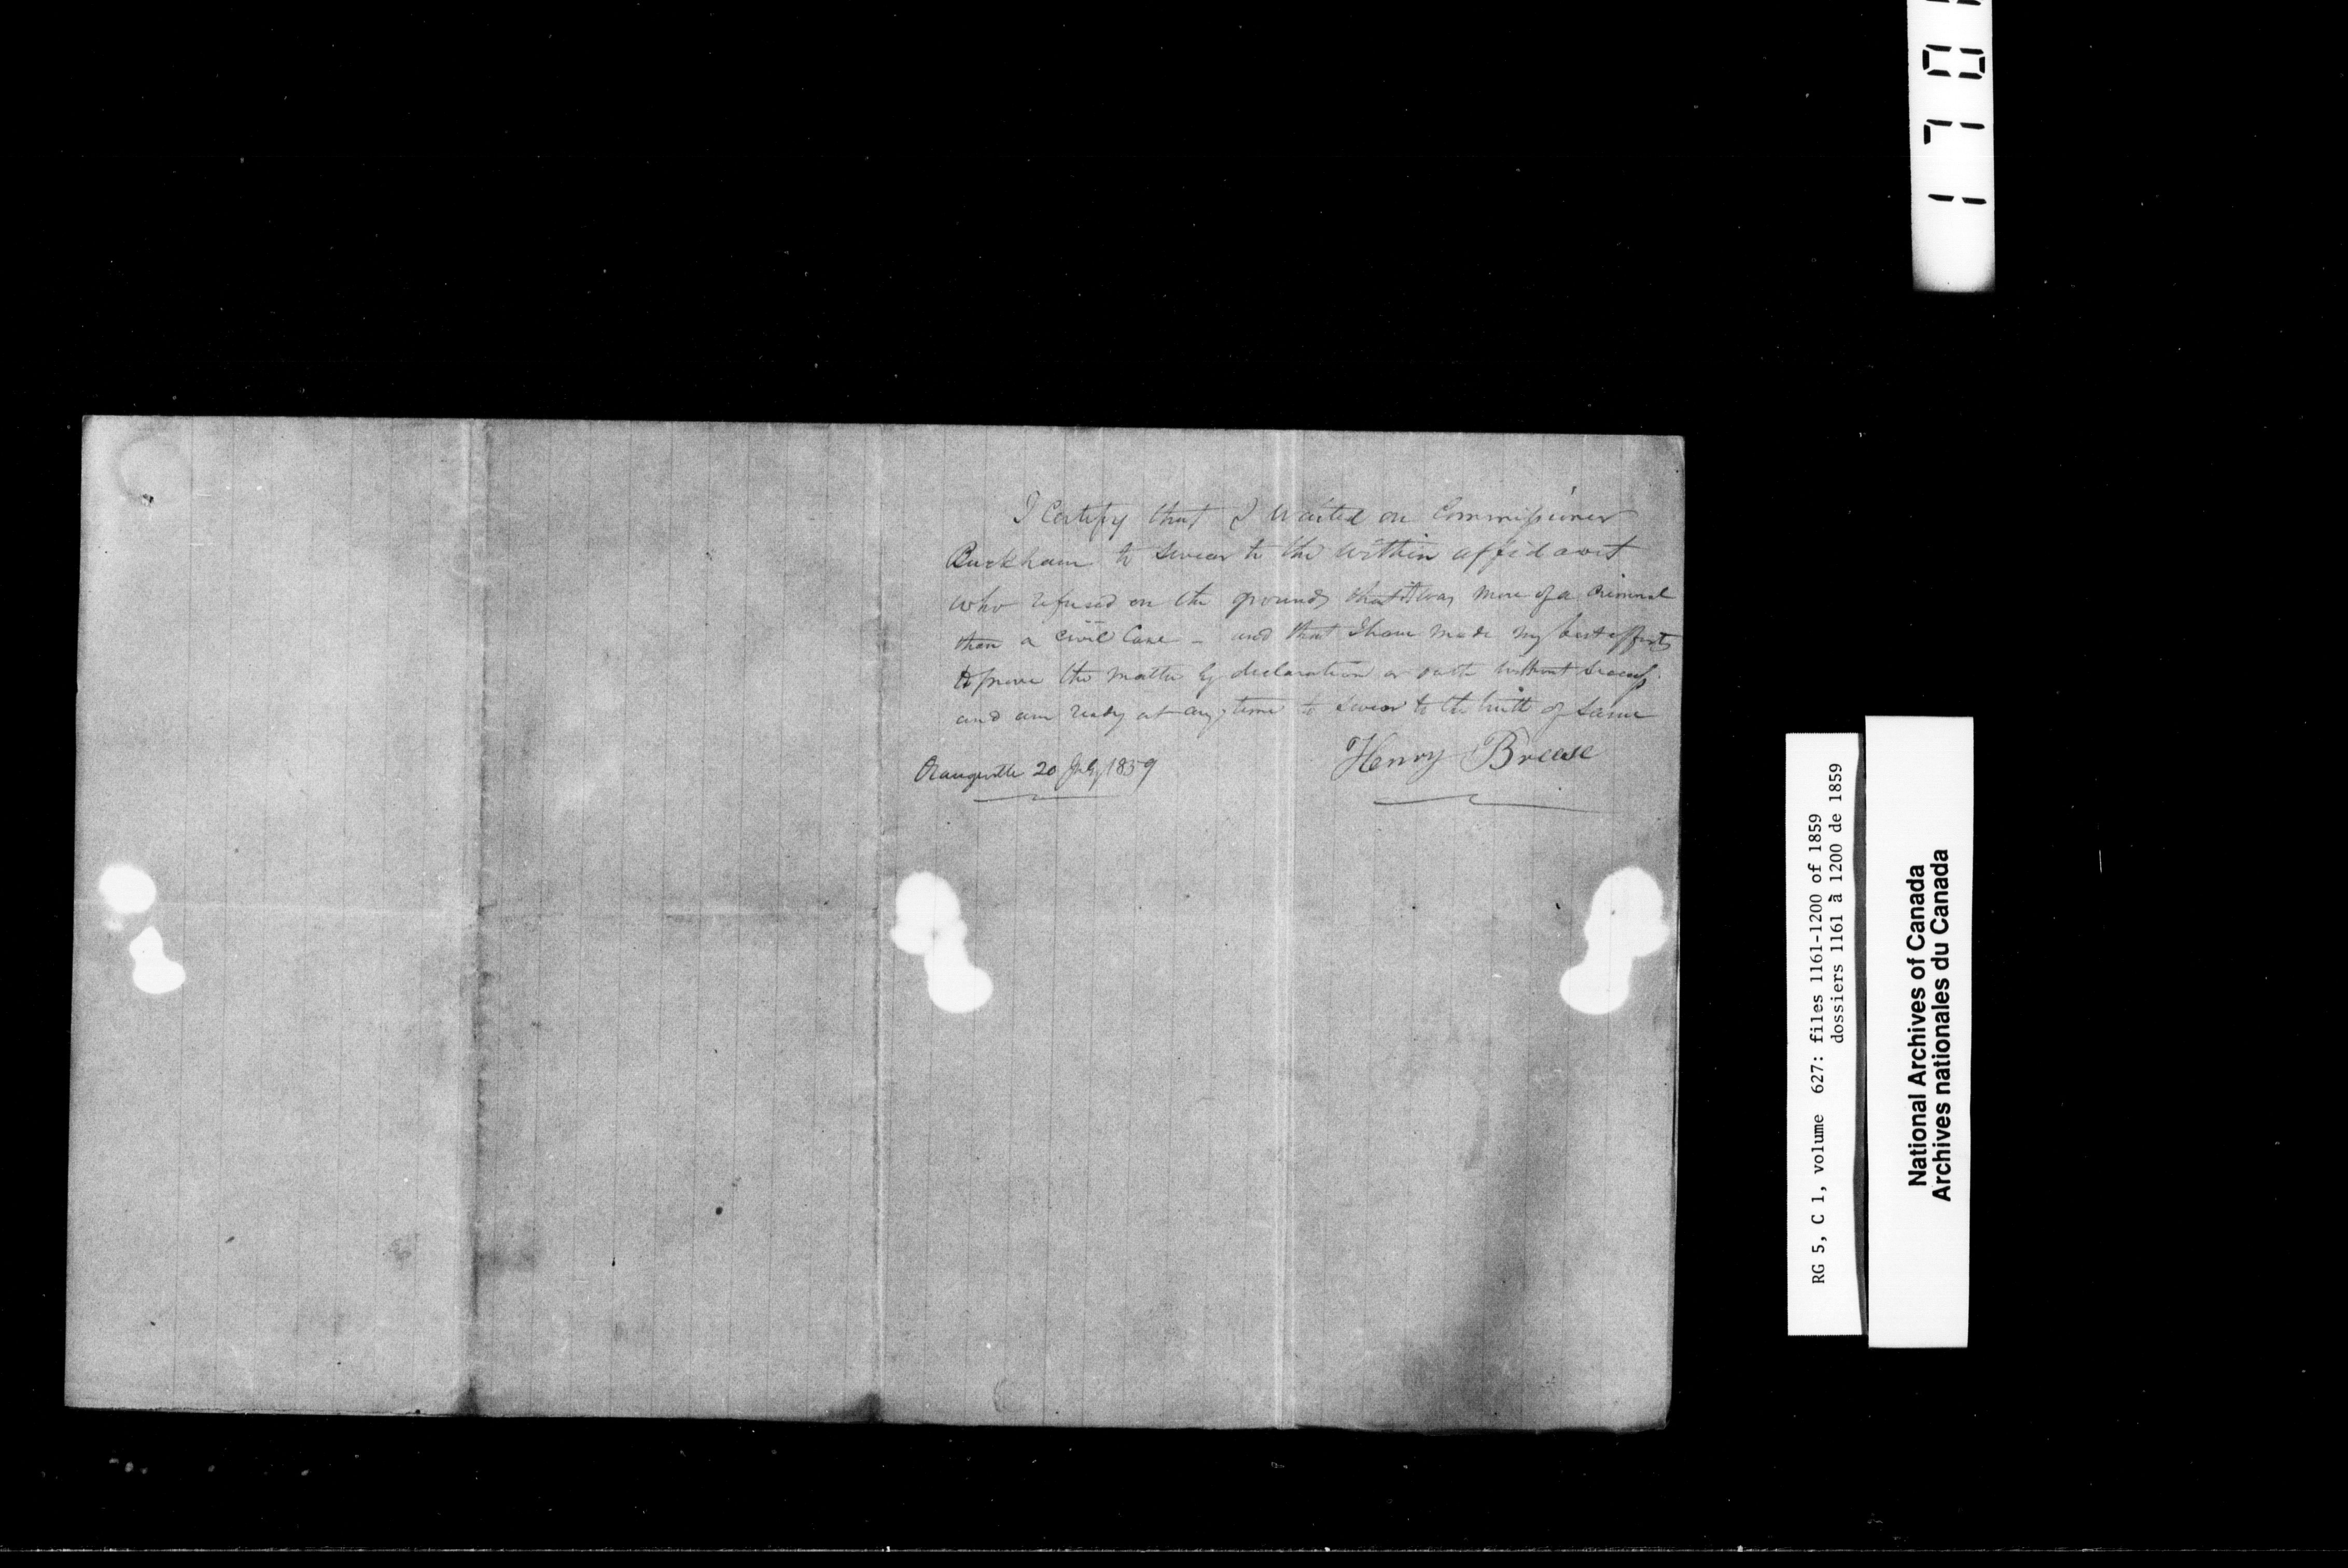 I Certify that I waited on Commissioner
Buckham to swear to the within affidavit
who refused on the grounds that it was more of a criminal
than a civil Case - and that I have made my best efforts
to prove the matter by declaration or oath without success
and am ready at any time to swear to the truth of same
Henry Breese
Orangeville 20 July 1859
RG 5, C 1, volume 627: files 1161-1200 of 1859
dossiers 1161 à 1200 de 1859
National Archives of Canada
Archives nationales du Canada
170